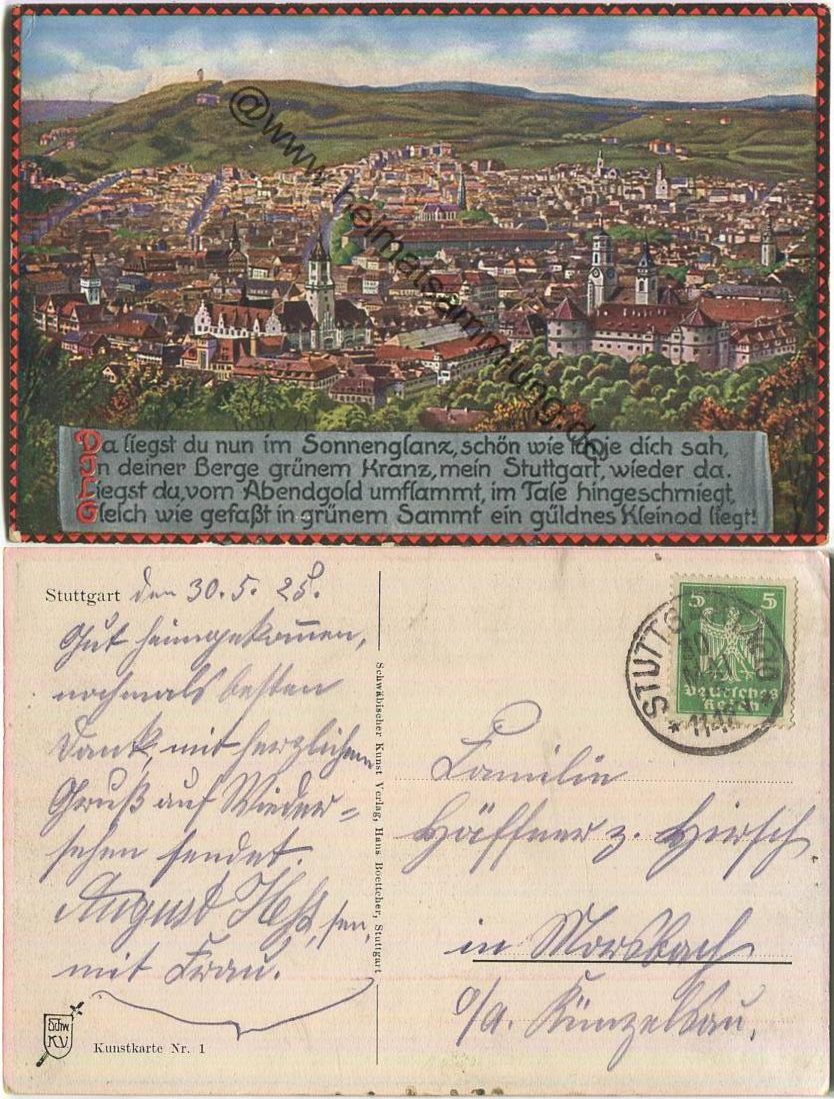 @www.heimatsammlung.de
Da liegst du nun im Sonnenglanz, schön wie ich je dich sah,
In deiner Berge grünem Kranz, mein Stuttgart, wieder da.
Liegst du, vom Abendgold umflammt, im Tale hingeschmiegt,
Gleich wie gefaßt in grünem Sammt ein güldnes Kleinod liegt!
Stuttgart den 30.5.25.
Gut heimgekommen,
nochmals besten
Dank, mit herzlichem
Gruß auf Wieder=
sehen sendet.
August sen.
mit Frau.
Schw.
K.V
Kunstkarte Nr. 1
Schwäbischer Kunst Verlag, Hans Boettcher, Stuttgart
5 5
Deutsches
Reich
STUTTG
30
MAI
Familie
Häffner z. Hirsch
in Morsbach
o/a. Künzelsau.